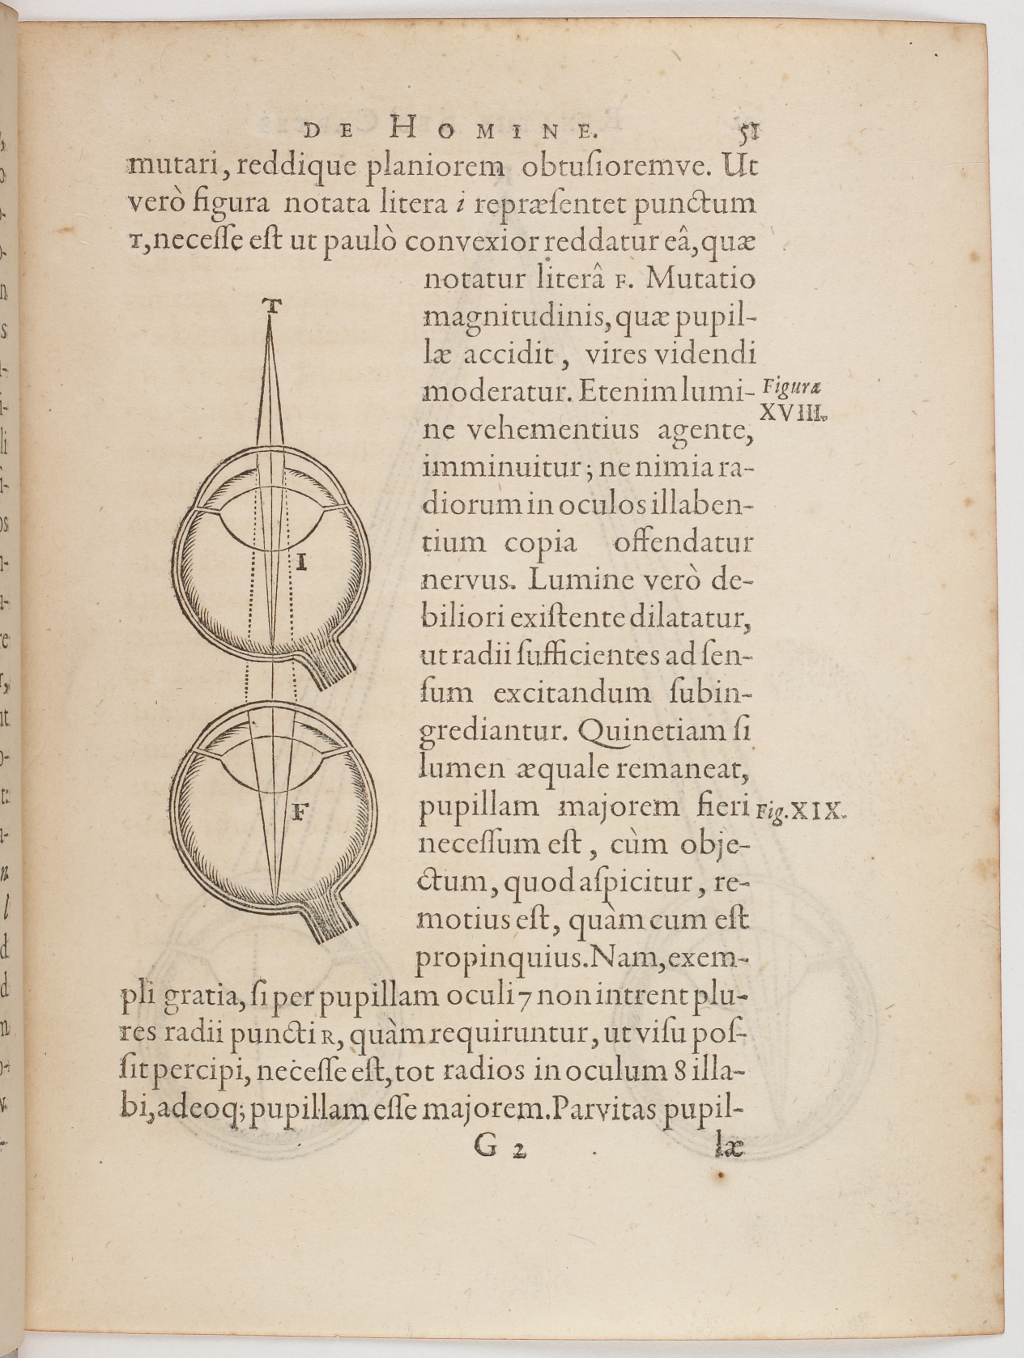 DE HOMINE. 51
mutari, reddique planiorem obtuſioremve. Ut
verò figura notata litera i repræſentet punctum
T, neceſſe eſt ut paulò convexior reddatur eâ, quæ
notatur literâ F. Mutatio
magnitudinis, quæ pupil-
læ accidit, vires videndi
moderatur. Etenim lumi-
Figura
XVIII.
ne vehementius agente,
imminuitur; ne nimia ra-
diorum in oculos illaben-
tium copia offendatur
nervus. Lumine verò de-
biliori exiſtente dilatatur,
ut radii ſufficientes ad ſen-
ſum excitandum ſubin-
grediantur. Quinetiam ſi
lumen æquale remaneat,
pupillam majorem fieri
Fig. XIX.
neceſſum eſt, cùm obje-
ctum, quod aſpicitur, re-
motius eſt, quàm cum eſt
propinquius. Nam, exem-
pli gratia, ſi per pupillam oculi 7 non intrent plu-
res radii puncti R, quàm requiruntur, ut viſu poſ-
ſit percipi, neceſſe eſt, tot radios in oculum 8 illa-
bi, adeoq; pupillam eſſe majorem. Parvitas pupil-
G 2 læ
T
I
F